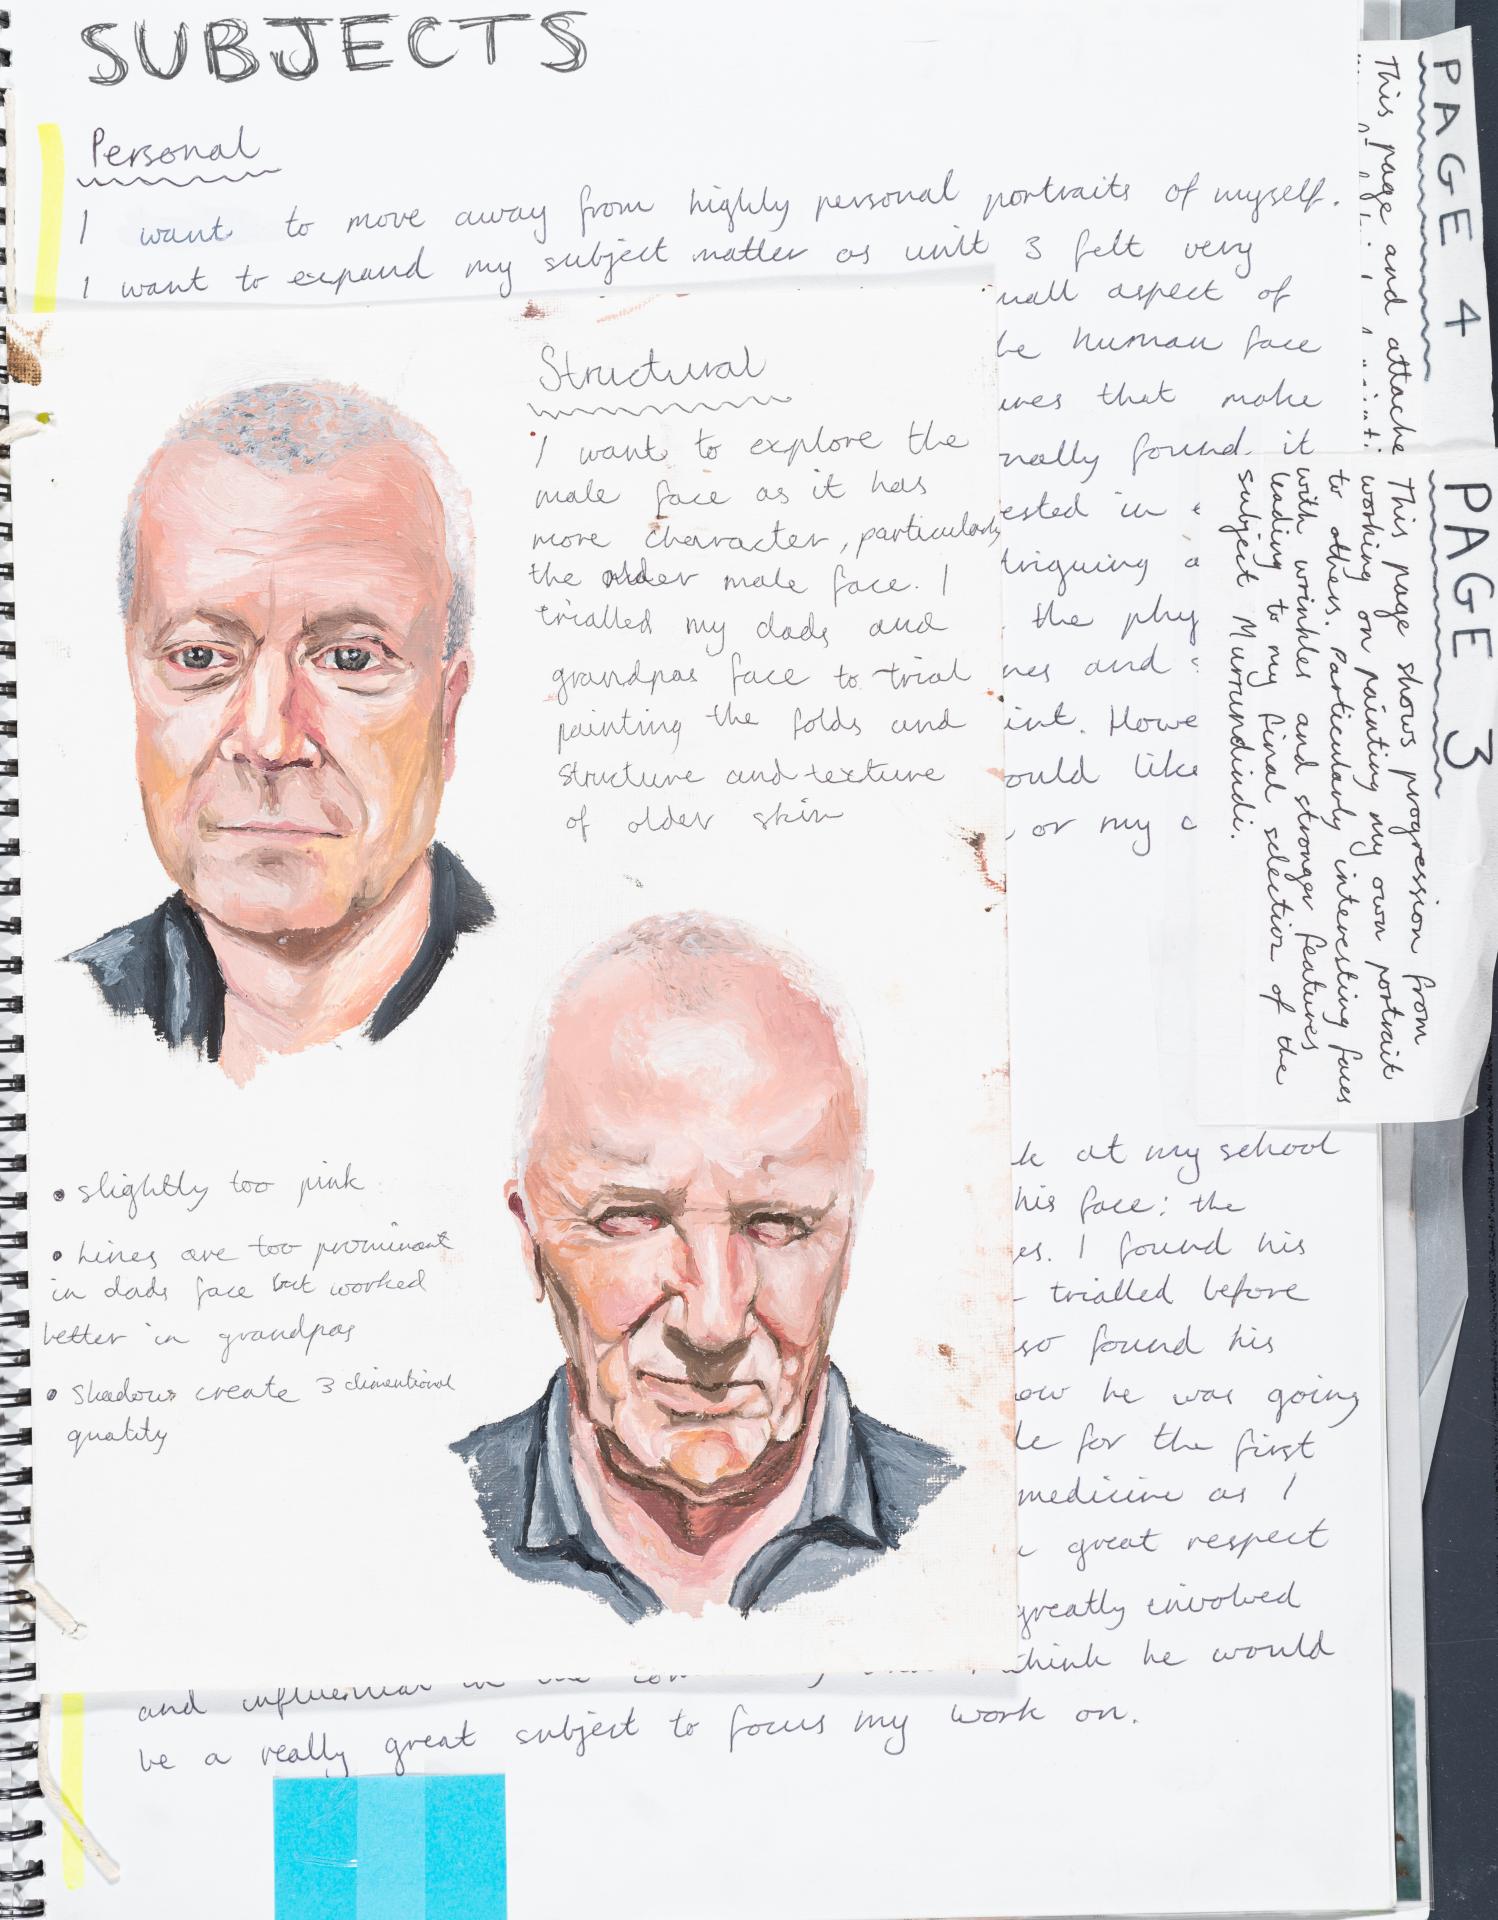 SUBJECTS
Personal
I want to move away from highly personal portraits of myself.
I want to expand my subject matter as unit 3 felt very
mall aspect of
human face
ures that make
nally found it
ested in
triguing a
the phy
nes and
int. Howe
ould like
or my c
k at my school
his face: the
es. I found his
trialled before
so found his
ow he was going
le for the first
medicine as I
great respect
greatly involved
think he would
and influential in the
be a really great subject to focus my work on.
Structural
I want to explore the
male face as it has
more character, particularly
the older male face. I
trialled my dads and
grandpas face to trial
painting the folds and
structure and texture
of older skin
• slightly too pink
• Lines are too prominant
in dads face but worked
better in grandpas
• Shadows create 3 dimentional
quality
PAGE 4
This page and attache
PAGE 3
This page shows progression from
working on painting my own portrait
to others. Particularly interesting faces
with wrinkles and stronger features
leading to my final selection of the
subject Murrundindi.